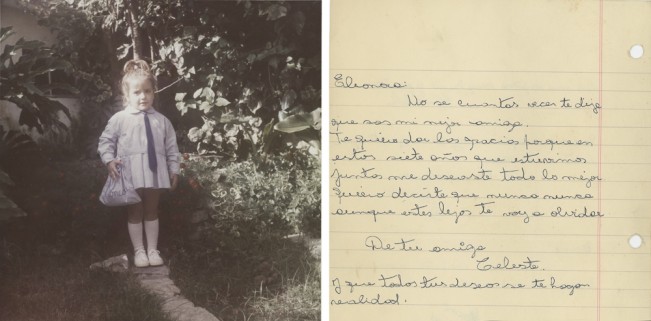 Eleonora:
No se cuantas veces te dije
que sos mi mejor amiga.
Te quiero dar las gracias porque en
estos siete años que estuvimos
juntas me deseaste todo lo mejor
quiero decirte que nunca nunca
aunque estes lejos te voy a olvidar
De tu amiga
Celeste.
Y que todos tus deseos se te hagan
realidad.